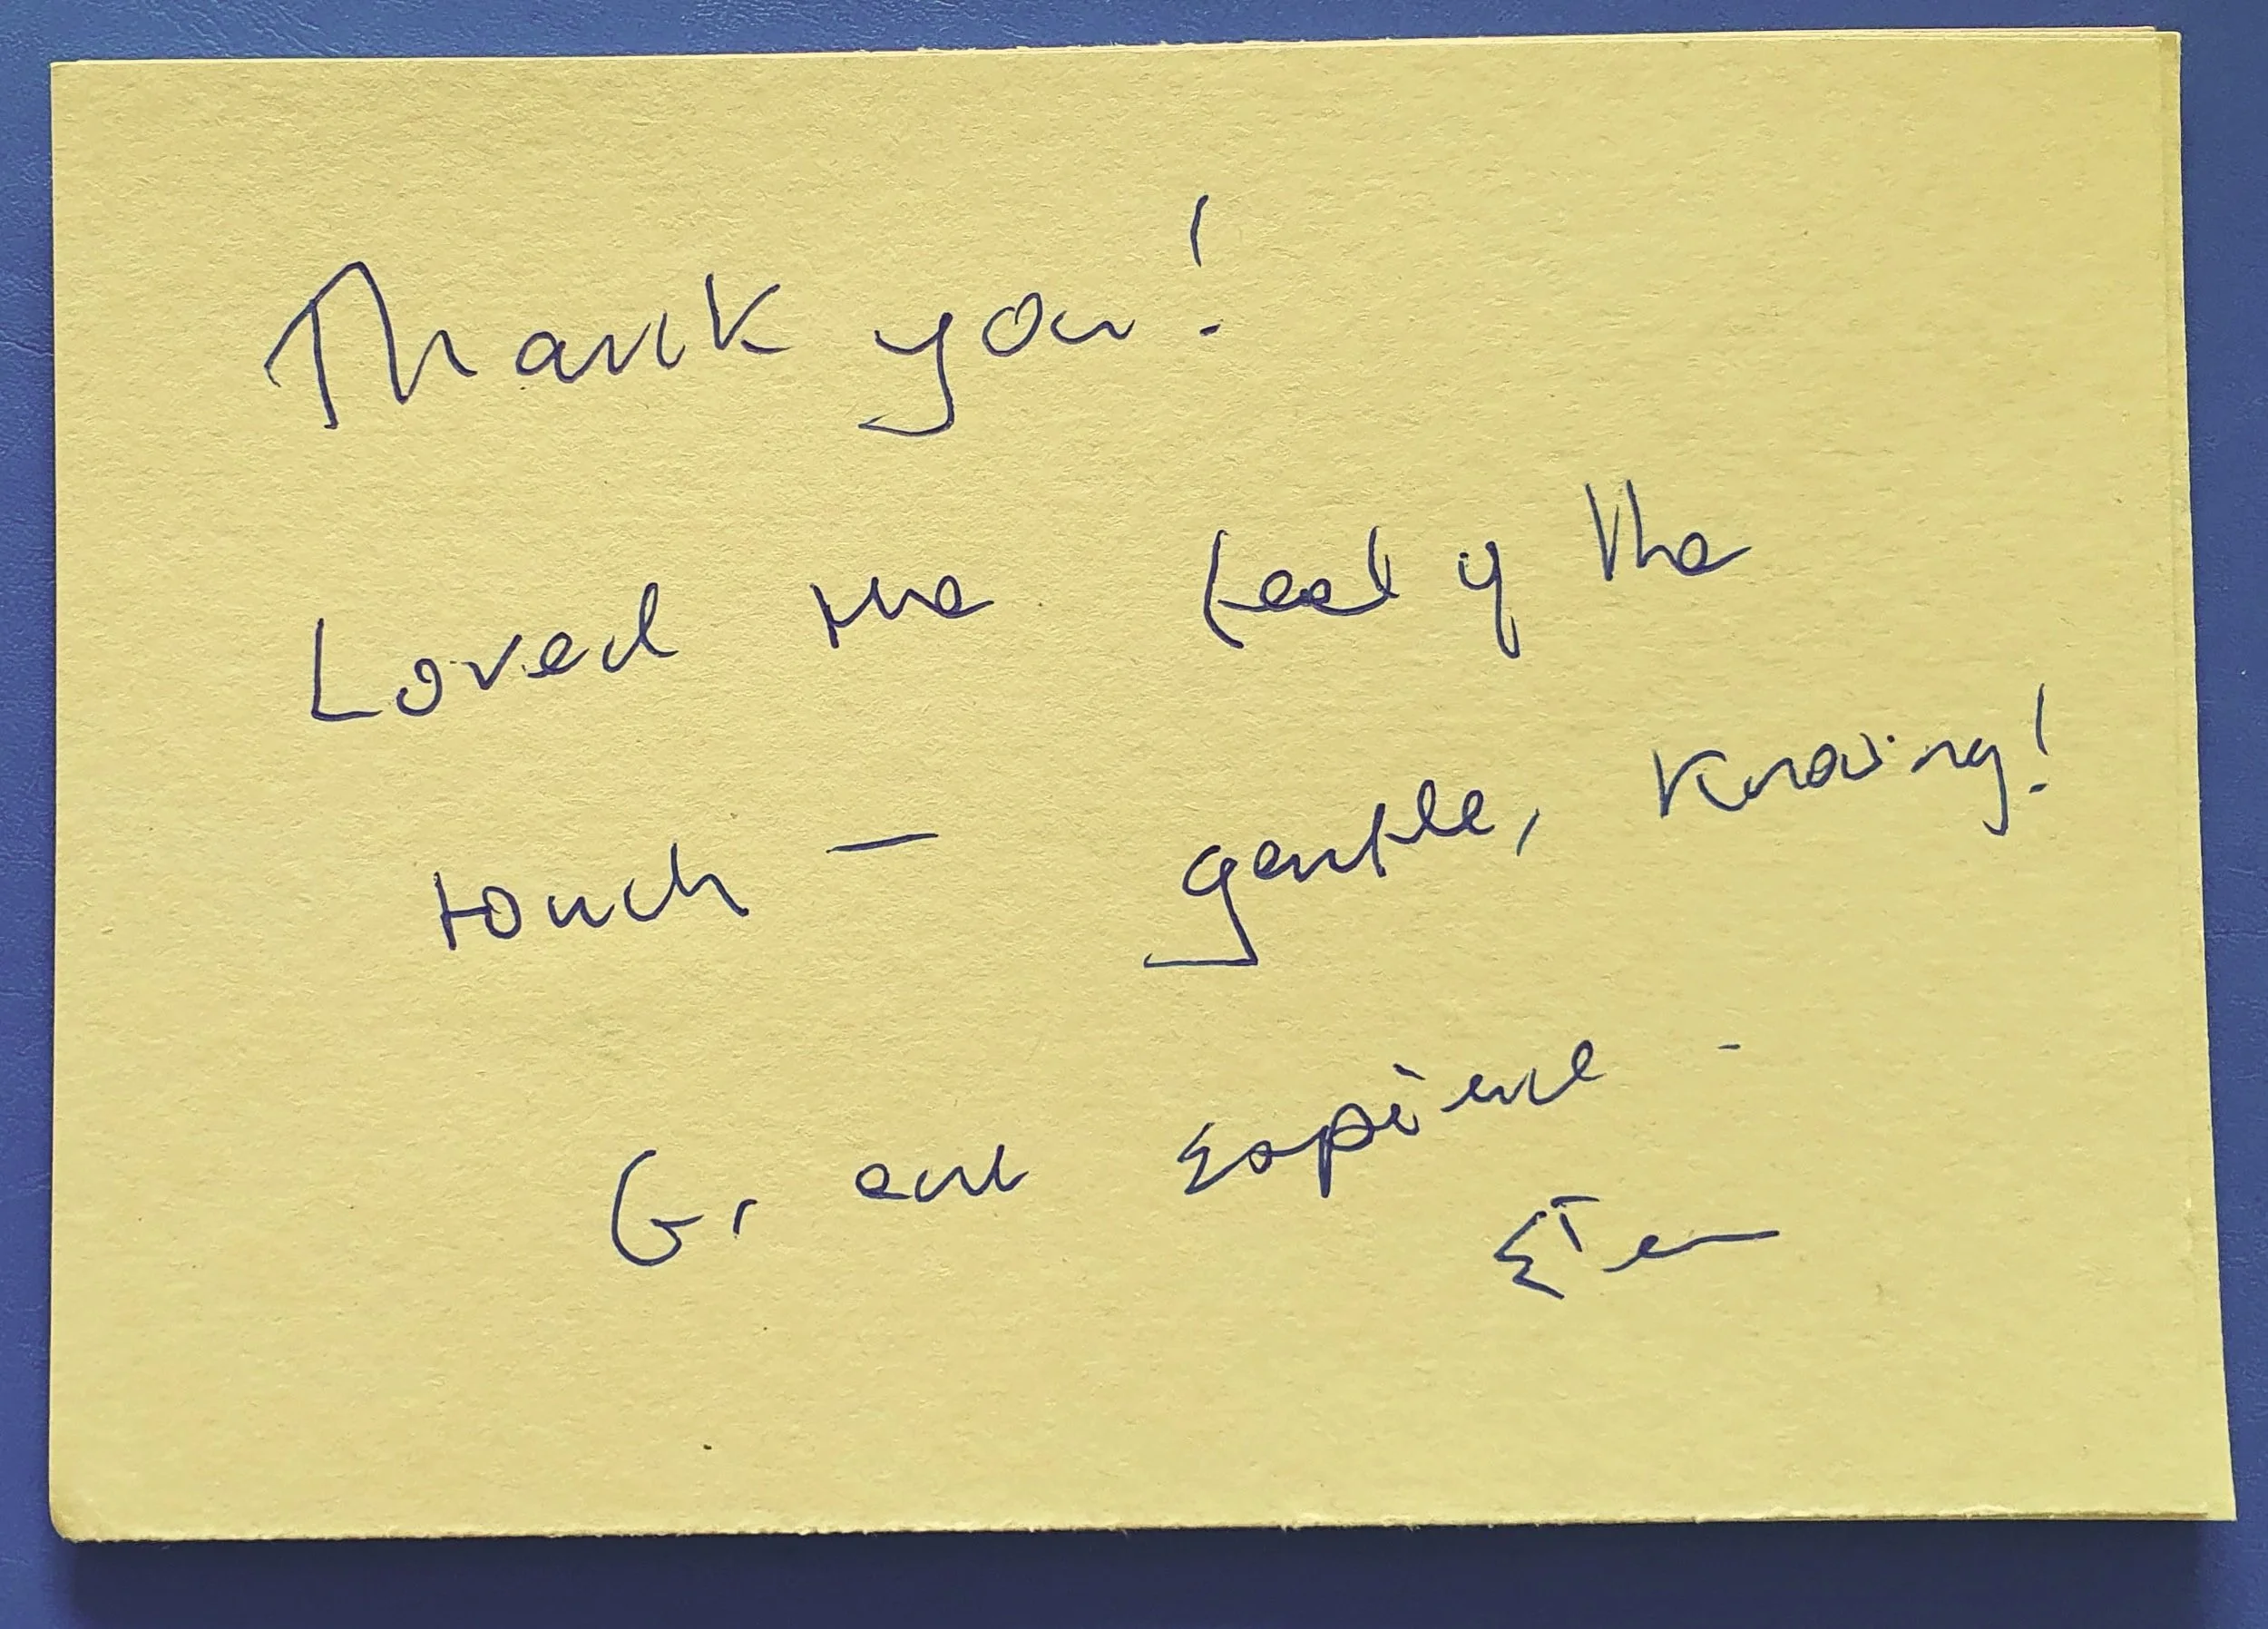 Thank you!
Loved the feel of the
touch — gentle, knowing!
Great experience -